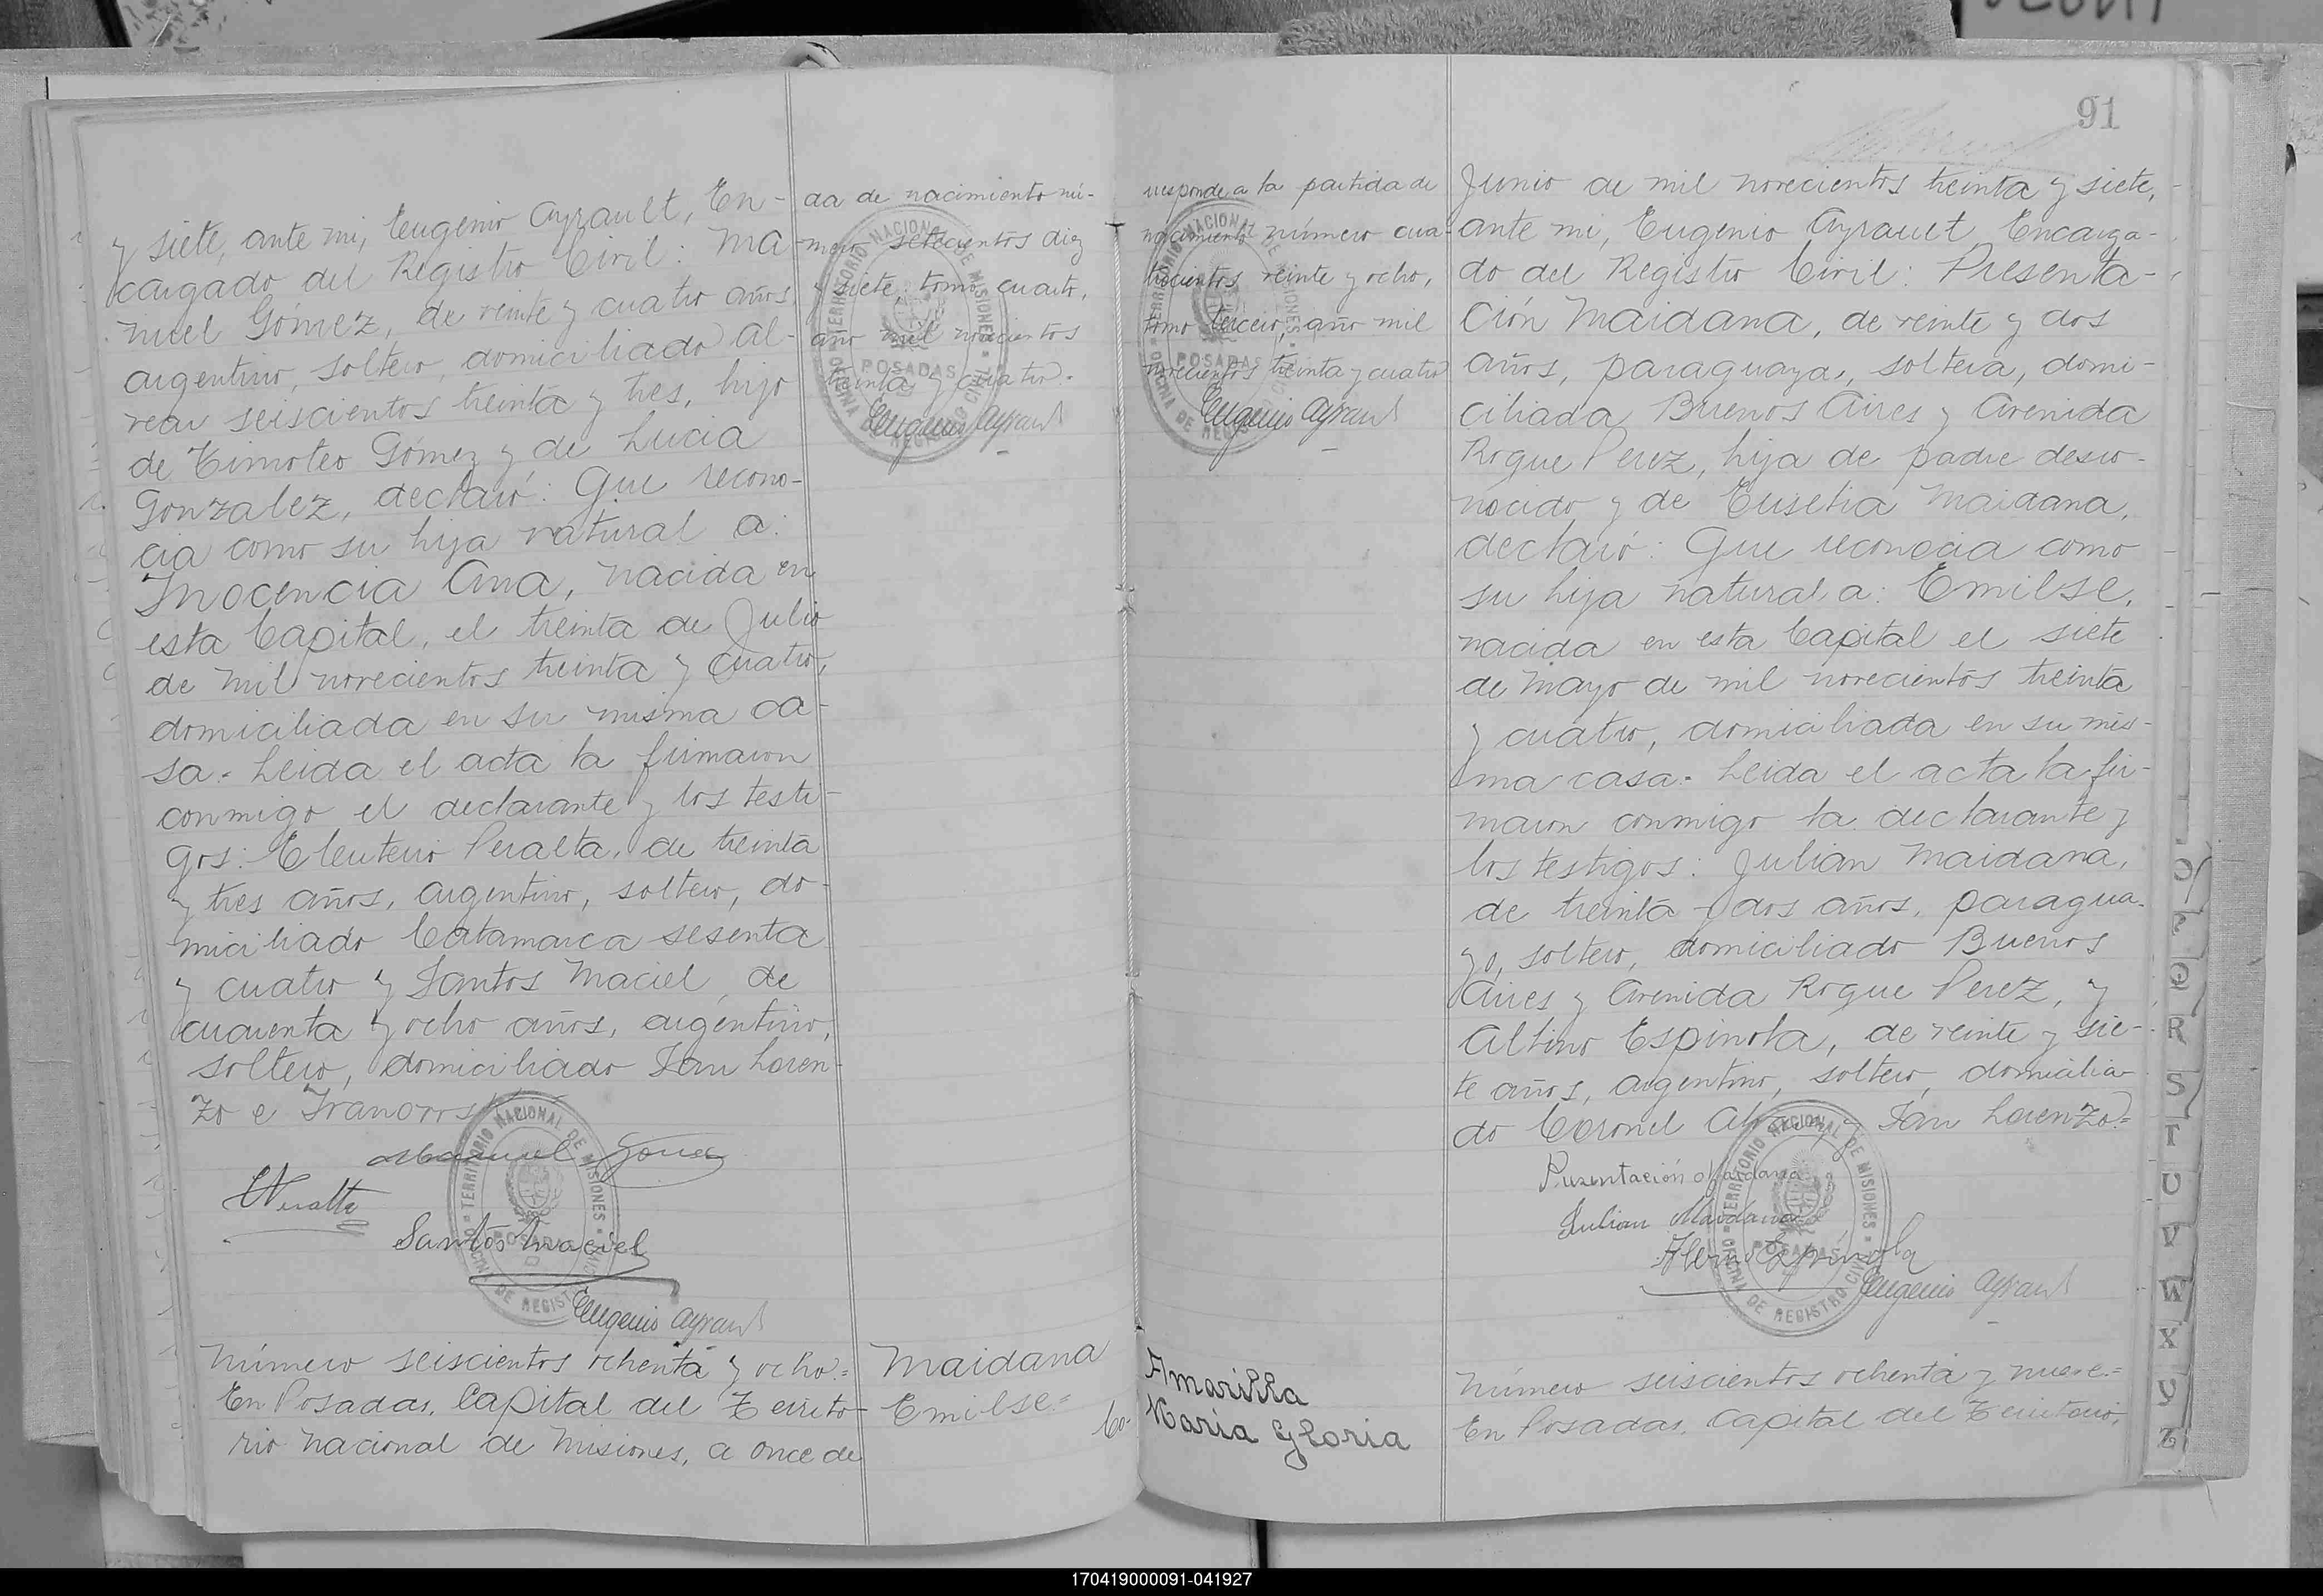 y siete, ante mi, Eugenio Ayrault, En-
cargado del Registro Civil: Ma
nuel Gómez, de veinte y cuatro años,
argentino, soltero, domiciliado Al-
vear seiscientos treinta y tres, hijo
de Timoteo Gómez y de Lucia
Gonzalez, declaró: Que recono-
cia como su hija natural a:
Inocencia Ana, nacida en
esta Capital, el treinta de Julio
de mil novecientos treinta y cuatro,
domiciliada en su misma ca-
sa.= Leida el acta la firmaron
conmigo el declarante y los testi-
gos: Eleuterio Peralta, de treinta
y tres años, argentino, soltero, do-
miciliado Catamarca sesenta
y cuatro y Santos Maciel, de
cuarenta y ocho años, argentino,
soltero, domiciliado San Loren-
zo e
Manuel Gomez
Peralta
Santos Maciel
Eugenio Ayrault
Número seiscientos ochenta y ocho.=
En Posadas, Capital del Territo-
rio Nacional de Misiones, a once de
da de nacimiento nú-
mero setecientos diez
y siete, tomo cuarto,
año mil novecientos
treinta y cuatro.-
Eugenio Ayrault
OFICINA DE REGISTRO CIVIL
TERRITORIO NACIONAL DE MISIONES
POSADAS
Maidana
Emilse=
Co-
rresponde a la partida de
nacimiento número cua-
trocientos veinte y ocho,
tomo tercero, año mil
novecientos treinta y cuatro
Eugenio Ayrault
OFICINA DE REGISTRO CIVIL
TERRITORIO NACIONAL DE MISIONES
POSADAS
Amarilla
Maria Gloria
91
Junio de mil novecientos treinta y siete,
ante mi, Eugenio Ayrault, Encarga-
do del Registro Civil: Presenta-
ción Maidana, de veinte y dos
años, paraguaya, soltera, domi-
ciliada Buenos Aires y Avenida
Roque Perez, hija de padre desco-
nocido y de Eusebia Maidana,
declaró: Que reconocia como
su hija natural a: Emilse,
nacida en esta Capital el siete
de Mayo de mil novecientos treinta
y cuatro, domiciliada en su mis-
ma casa.= Leida el acta la fir-
maron conmigo la declarante y
los testigos: Julian Maidana,
de treinta y dos años, paragua-
yo, soltero, domiciliado Buenos
Aires y Avenida Roque Perez, y
Altino Espinola, de veinte y sie-
te años, argentino, soltero, domicilia-
do Coronel y San Lorenzo.=
Presentación Maidana
Julian Maidana
Espinola
Eugenio Ayrault
OFICINA DE REGISTRO CIVIL
TERRITORIO NACIONAL DE MISIONES
POSADAS
Número seiscientos ochenta y nueve.=
En Posadas, Capital del Territorio
O
P
Q
R
S
T
U
V
W
X
Y
Z
170419000091-041927